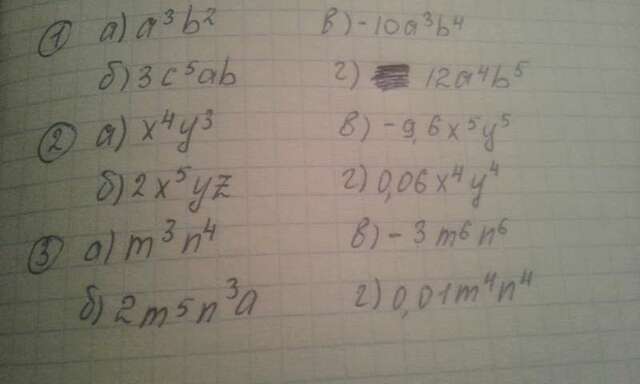 ① а) a³b² в) -10a³b⁴
б) 3c⁵ab г) 12a⁴b⁵
② а) x⁴y³ в) -9,6x⁵y⁵
б) 2x⁵yz г) 0,06x⁴y⁴
③ а) m³n⁴ в) -3m⁶n⁶
б) 2m⁵n³a г) 0,01m⁴n⁴